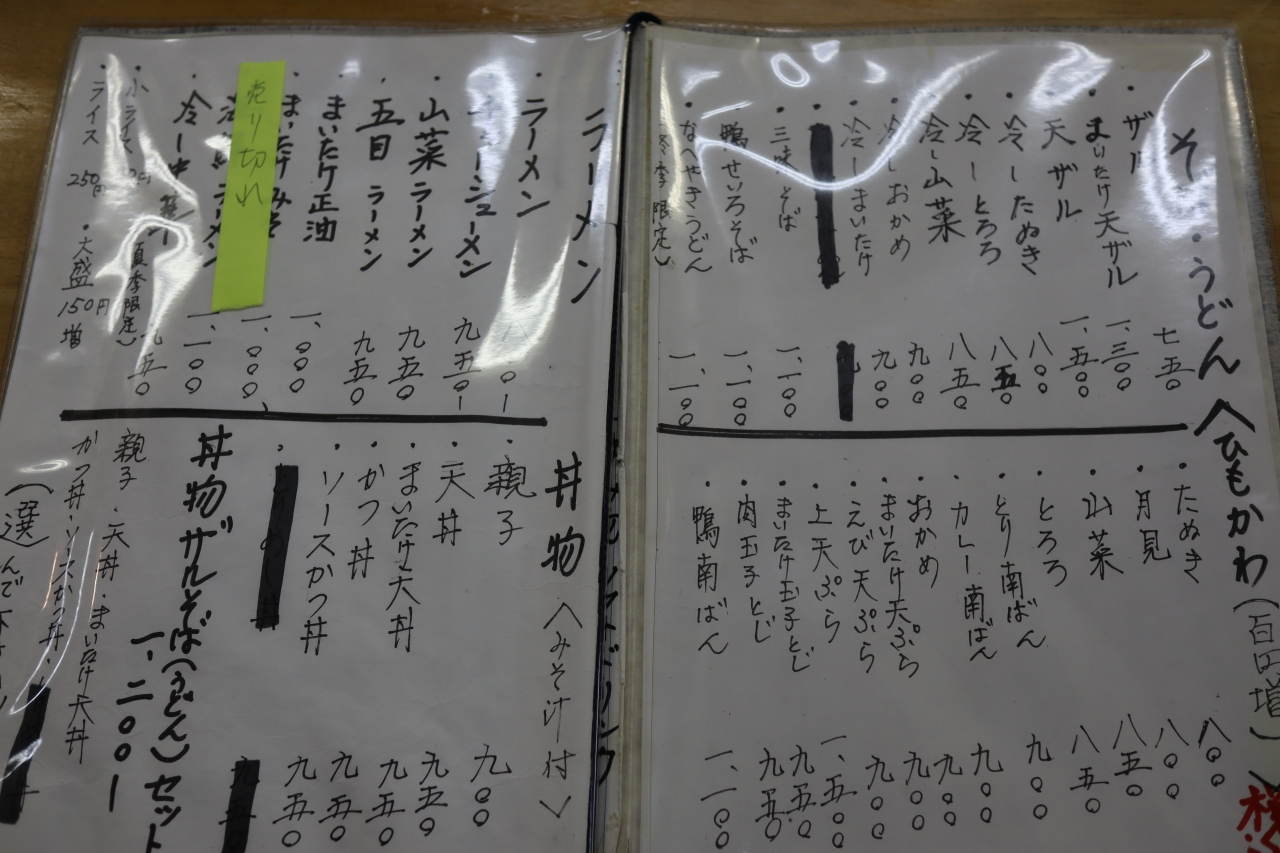 そ・うどん〈ひもかわ(百円増)〉
・ザル 七五〇
・まいたけ天ザル 一、三〇〇
・天ザル 一、五〇〇
・冷したぬき 八〇〇
・冷しとろろ 八五〇
・冷し山菜 八五〇
・冷しおかめ 九〇〇
・冷しまいたけ 九〇〇
・三味そば 一、一〇〇
・鴨せいろそば 一、一〇〇
・なべやきうどん 一、一〇〇
冬季限定)
・たぬき 八〇〇
・月見 八〇〇
・山菜 八五〇
・とろろ 八五〇
・とり南ばん 九〇〇
・カレー南ばん 九〇〇
・おかめ 九〇〇
・まいたけ天ぷら 九〇〇
・えび天ぷら 九〇〇
・上天ぷら 一、五〇〇
・まいたけ玉子とじ 九五〇
・肉玉子とじ 九五〇
・鴨南ばん 一、一〇〇
ラーメン
・ラーメン
チャーシューメン 九五〇ー
・山菜ラーメン 九五〇
・五目ラーメン 九五〇
・まいたけ正油 一、〇〇〇
・まいたけみそ 一、〇〇〇
ラーメン 一、一〇〇
売り切れ
・冷し中華 九五〇
夏季限定)
・小ライス
・ライス 250円
・大盛150円増
丼物〈みそ汁付〉
・親子 九〇〇
・天丼 九五〇
・まいたけ天丼 九五〇
・かつ丼 九五〇
・ソースかつ丼 九五〇
丼物ザルそば(うどん)セット
一、二〇〇ー
親子・天丼・まいたけ天丼
かつ丼・ソースかつ丼・
(選んで